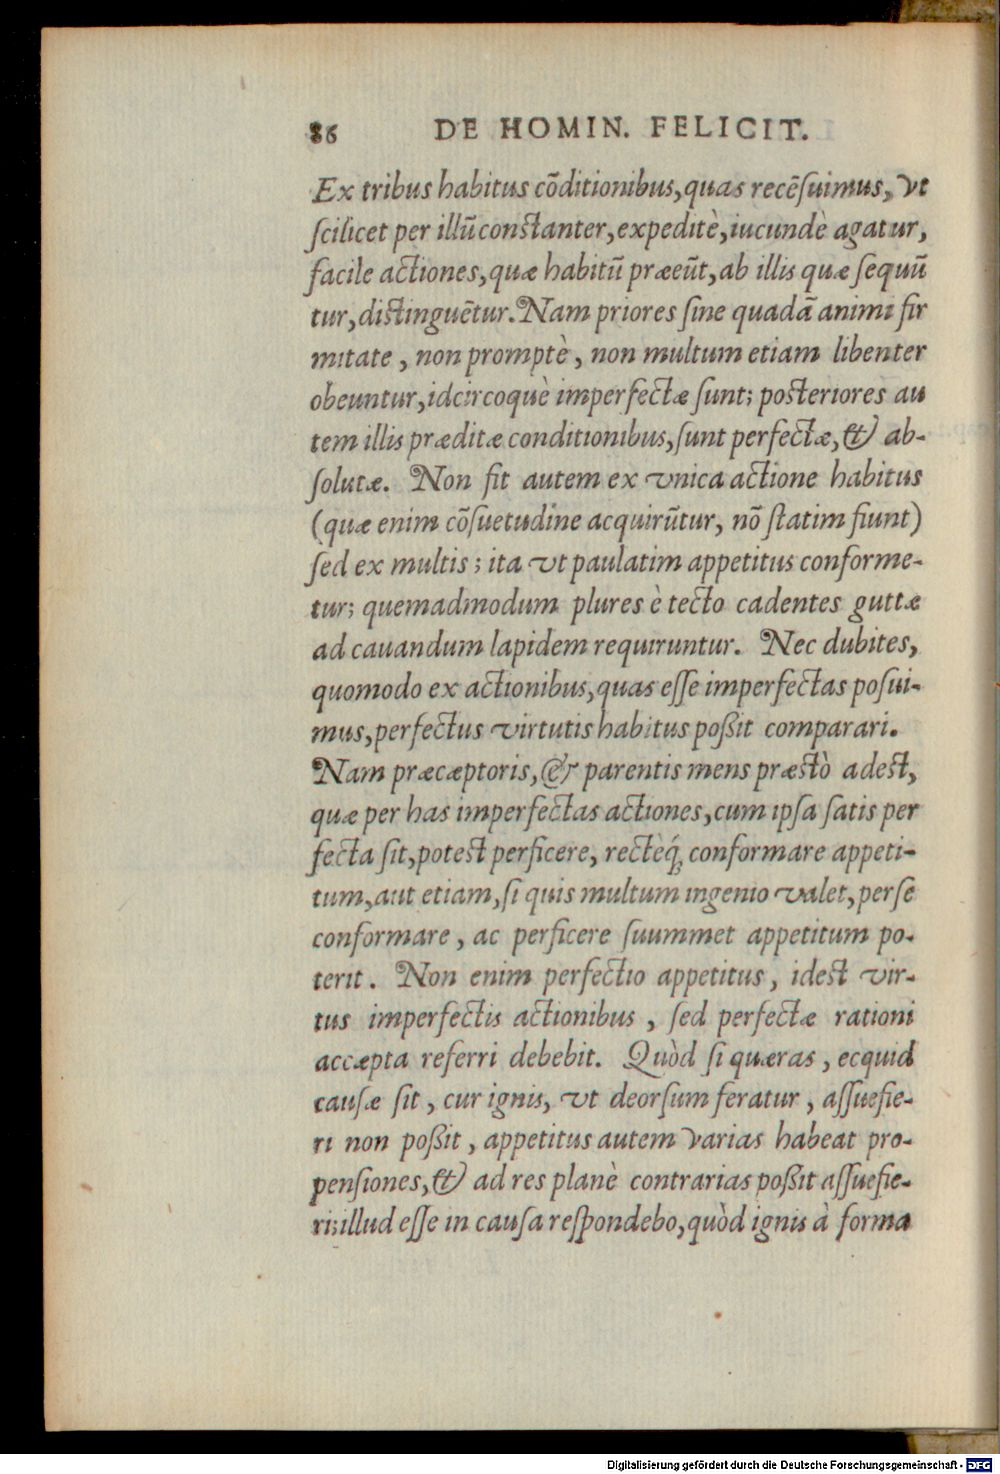 86 DE HOMIN. FELICIT.
Ex tribus habitus cōditionibus, quas recēſuimus, vt
ſcilicet per illū conſtanter, expeditè, iucundè agatur,
facile actiones, quæ habitū præeūt, ab illis quæ ſequū
tur, diſtinguētur. Nam priores ſine quadā animi fir
mitate, non promptè, non multum etiam libenter
obeuntur, idcircoquè imperfectæ ſunt; poſteriores au
tem illis præditæ conditionibus, ſunt perfectæ, & ab-
ſolutæ. Non fit autem ex vnica actione habitus
(quæ enim cōſuetudine acquirūtur, nō ſtatim fiunt)
ſed ex multis; ita vt paulatim appetitus conforme-
tur; quemadmodum plures è tecto cadentes guttæ
ad cauandum lapidem requiruntur. Nec dubites,
quomodo ex actionibus, quas eſſe imperfectas poſui-
mus, perfectus virtutis habitus poßit comparari.
Nam præcæptoris, & parentis mens præſtò adeſt,
quæ per has imperfectas actiones, cum ipſa ſatis per
fecta ſit, poteſt perficere, rectèq́; conformare appeti-
tum, aut etiam, ſi quis multum ingenio valet, per ſe
conformare, ac perficere ſuummet appetitum po-
terit. Non enim perfectio appetitus, ideſt vir-
tus imperfectis actionibus, ſed perfectæ rationi
accæpta referri debebit. Quòd ſi quæras, ecquid
cauſæ ſit, cur ignis, vt deorſum feratur, aſſuefie-
ri non poßit, appetitus autem varias habeat pro-
penſiones, & ad res planè contrarias poßit aſſuefie-
ri; illud eſſe in cauſa reſpondebo, quòd ignis à forma
Digitalisierung gefördert durch die Deutsche Forschungsgemeinschaft - DFG